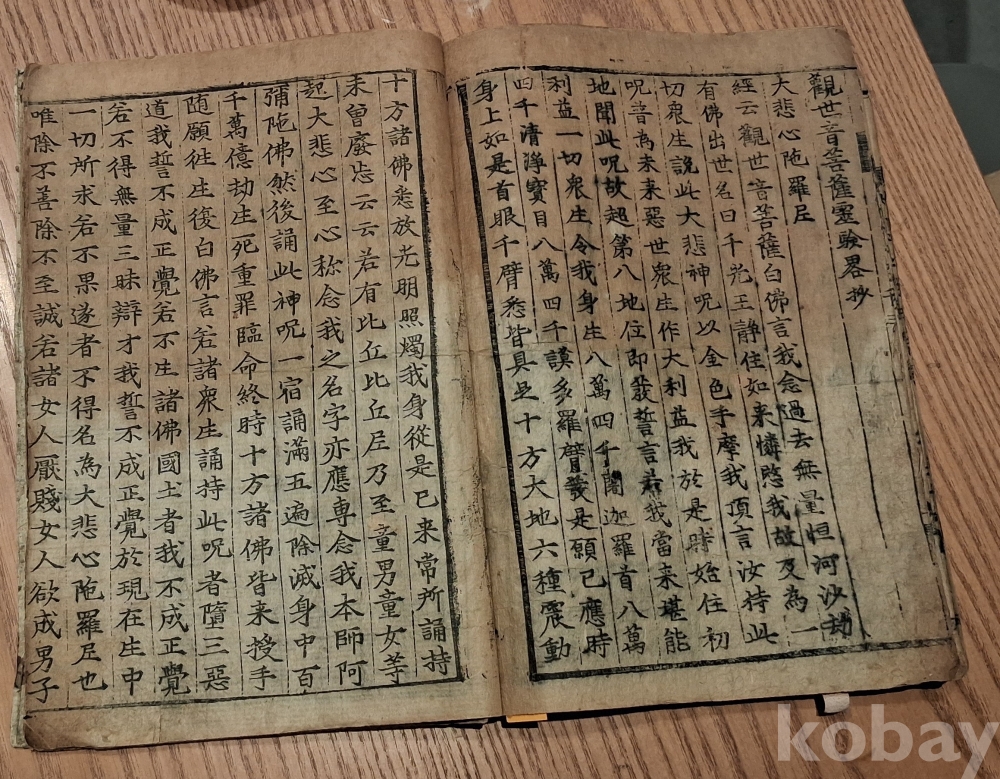 觀世音菩薩靈驗畧抄
大悲心陁羅尼
經云觀世音菩薩白佛言我念過去無量恒河沙劫
有佛出世名曰千光王靜住如来憐愍我故及為一
切衆生說此大悲神呪以金色手摩我頂言汝持此
呪普為未来惡世衆生作大利益我於是時始住初
地聞此呪故起第八地住即發誓言若我當来堪能
利益一切衆生令我身生八萬四千閪迦羅首八萬
四千清淨寶目八萬四千謨多羅臂發是願已應時
身上如是首眼千臂悉皆具足十方大地六種震動
十方諸佛悉放光明照燭我身從是已来常所誦持
未曾廢忘云云若有比丘比丘尼乃至童男童女等
起大悲心至心称念我之名字亦應専念我本師阿
彌陁佛然後誦此神呪一宿誦滿五遍除滅身中百
千萬億劫生死重罪臨命終時十方諸佛皆来授手
随願徃生復白佛言若諸衆生誦持此呪者墮三惡
道我誓不成正覺若不生諸佛國土者我不成正覺
若不得無量三昧辯才我誓不成正覺於現在生中
一切所求若不果遂者不得名為大悲心陁羅尼也
唯除不善除不至誠若諸女人厭賤女人欲成男子
kobay